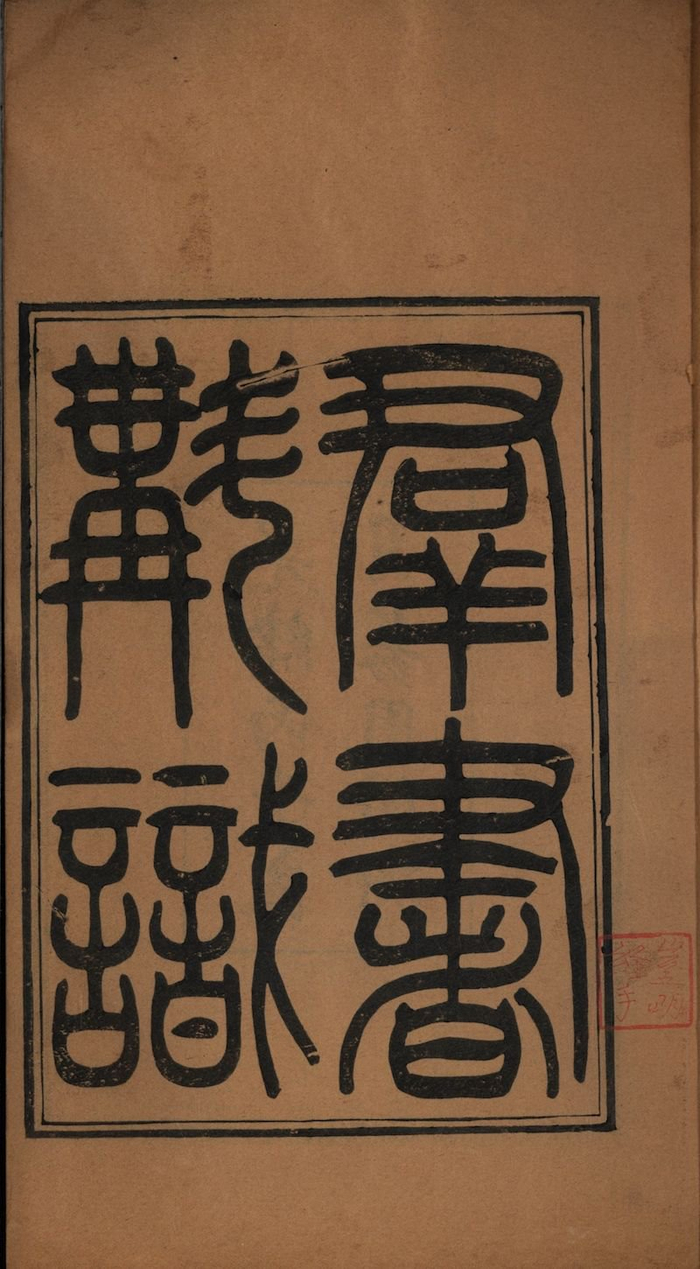 羣書
斠識